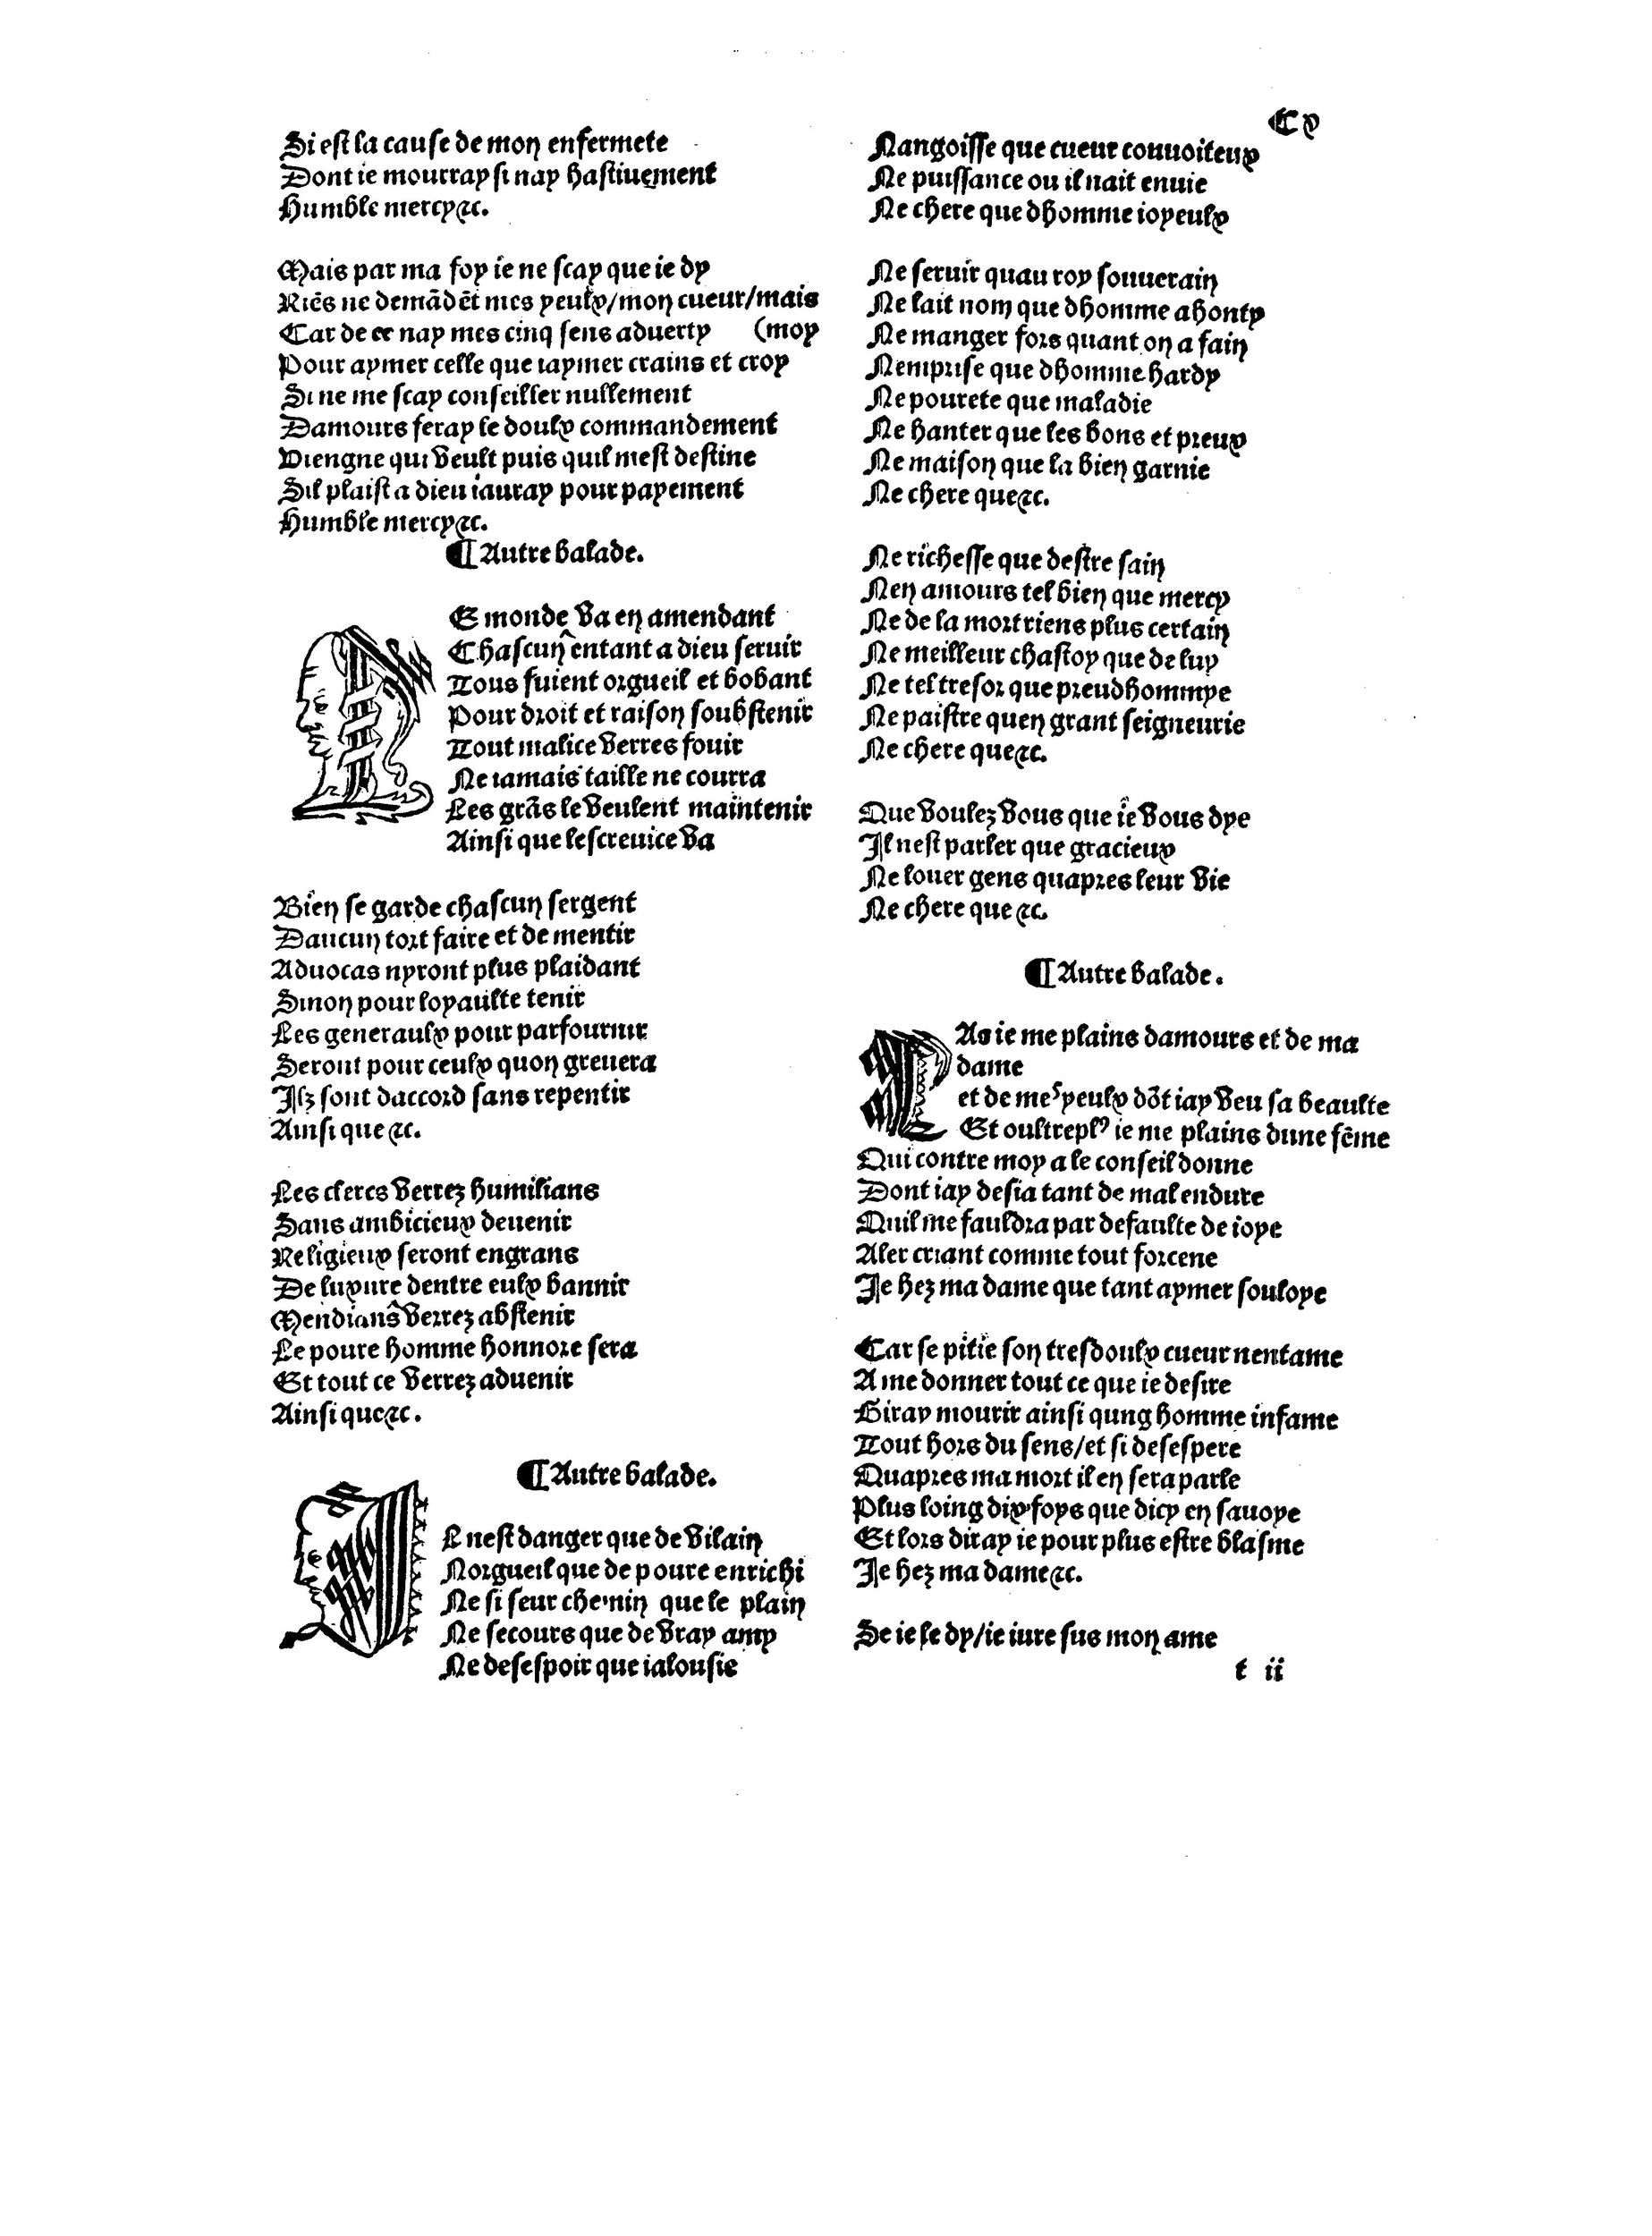 Cx
Si est la cause de mon enfermete
Dont ie mourray si nay hastiuement
Humble mercy⁊c.
Mais par ma foy ie ne scay que ie dy
Riẽs ne demãdẽt mes yeulx/mon cueur/mais
Car de ce nay mes cinq sens aduerty (moy
Pour aymer celle que iaymer crains et croy
Si ne me scay conseiller nullement
Damours feray le doulx commandement
Viengne qui veult puis quil mest destine
Sil plaist a dieu iauray pour payement
Humble mercy⁊c.
¶ Autre balade.
LE monde va en amendant
Chascun entant a dieu seruir
Tous fuient orgueil et bobant
Pour droit et raison soubstenir
Tout malice verres fouir
Ne iamais taille ne courra
Les grãs le veulent maintenir
Ainsi que lescreuice va
Bien se garde chascun sergent
Daucun tort faire et de mentir
Aduocas nyront plus plaidant
Sinon pour loyaulte tenir
Les generaulx pour parfournir
Seront pour ceulx quon greuera
Ilz sont daccord sans repentir
Ainsi que ⁊c.
Les clercs verrez humilians
Sans ambicieux deuenir
Religieux seront engrans
De luxure dentre eulx bannir
Mendians verrez abstenir
Le poure homme honnore sera
Et tout ce verrez aduenir
Ainsi que⁊c.
¶ Autre balade.
IL nest danger que de vilain
Norgueil que de poure enrichi
Ne si seur chemin que le plain
Ne secours que de vray amy
Ne desespoir que ialousie
Nangoisse que cueur conuoiteux
Ne puissance ou il nait enuie
Ne chere que dhomme ioyeulx
Ne seruir quau roy souuerain
Ne lait nom que dhomme ahonty
Ne manger fors quant on a fain
Nemprise que dhomme hardy
Ne pourete que maladie
Ne hanter que les bons et preux
Ne maison que la bien garnie
Ne chere que⁊c.
Ne richesse que destre sain
Nen amours tel bien que mercy
Ne de la mort riens plus certain
Ne meilleur chastoy que de luy
Ne tel tresor que preudhommye
Ne paistre quen grant seigneurie
Ne chere que⁊c.
Que voulez vous que ie vous dye
Il nest parler que gracieux
Ne louer gens quapres leur vie
Ne chere que ⁊c.
¶ Autre balade.
LAs ie me plains damours et de ma
dame
et de mes yeulx dõt iay veu sa beaulte
Et oultreplꝰ ie me plains dune fẽme
Qui contre moy a le conseil donne
Dont iay desia tant de mal endure
Quil me fauldra par defaulte de ioye
Aler criant comme tout forcene
Je hez ma dame que tant aymer souloye
Car se pitie son tresdoulx cueur nentame
A me donner tout ce que ie desire
Giray mourir ainsi qung homme infame
Tout hors du sens/et si desespere
Quapres ma mort il en sera parle
Plus loing dix foys que dicy en sauoye
Et lors diray ie pour plus estre blasme
Je hez ma dame⁊c.
Se ie le dy/ie iure sus mon ame
t ii